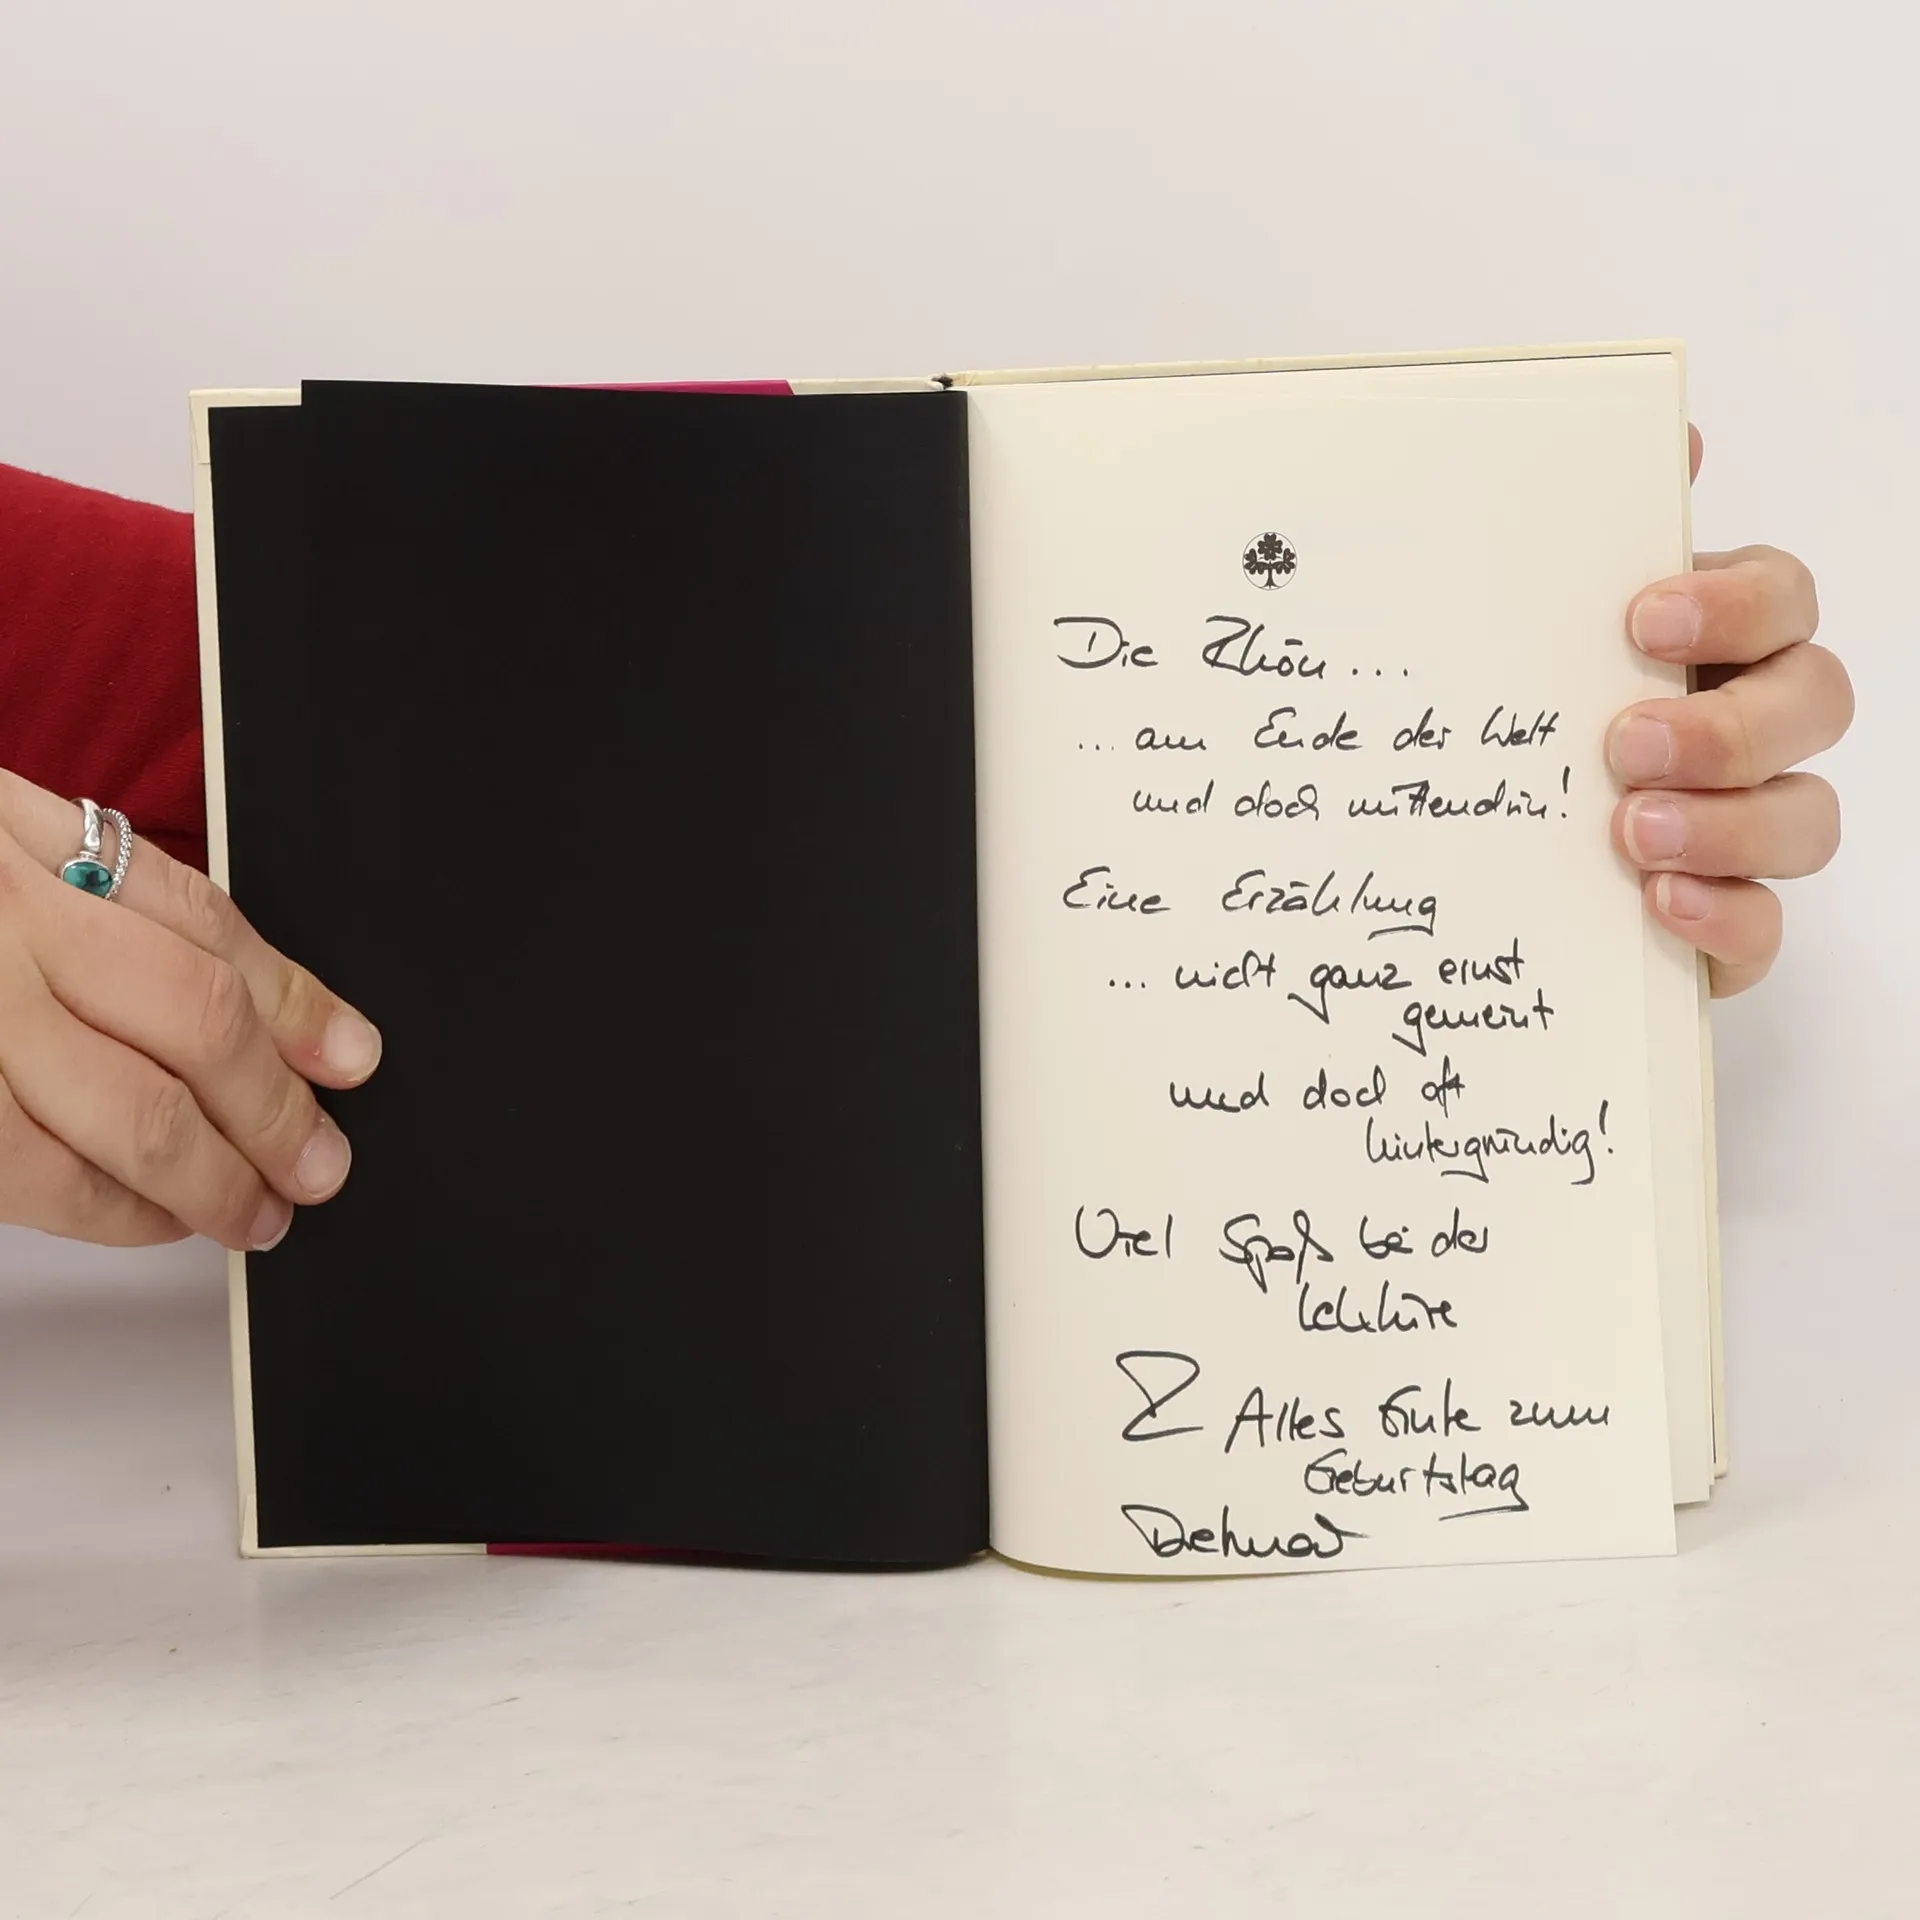 Die Rhön...
... am Ende der Welt
und doch mittendrin!
Eine Erzählung
... nicht ganz ernst
gemeint
und doch oft
hintergründig!
Viel Spaß bei der
Lektüre
& Alles Gute zum
Geburtstag